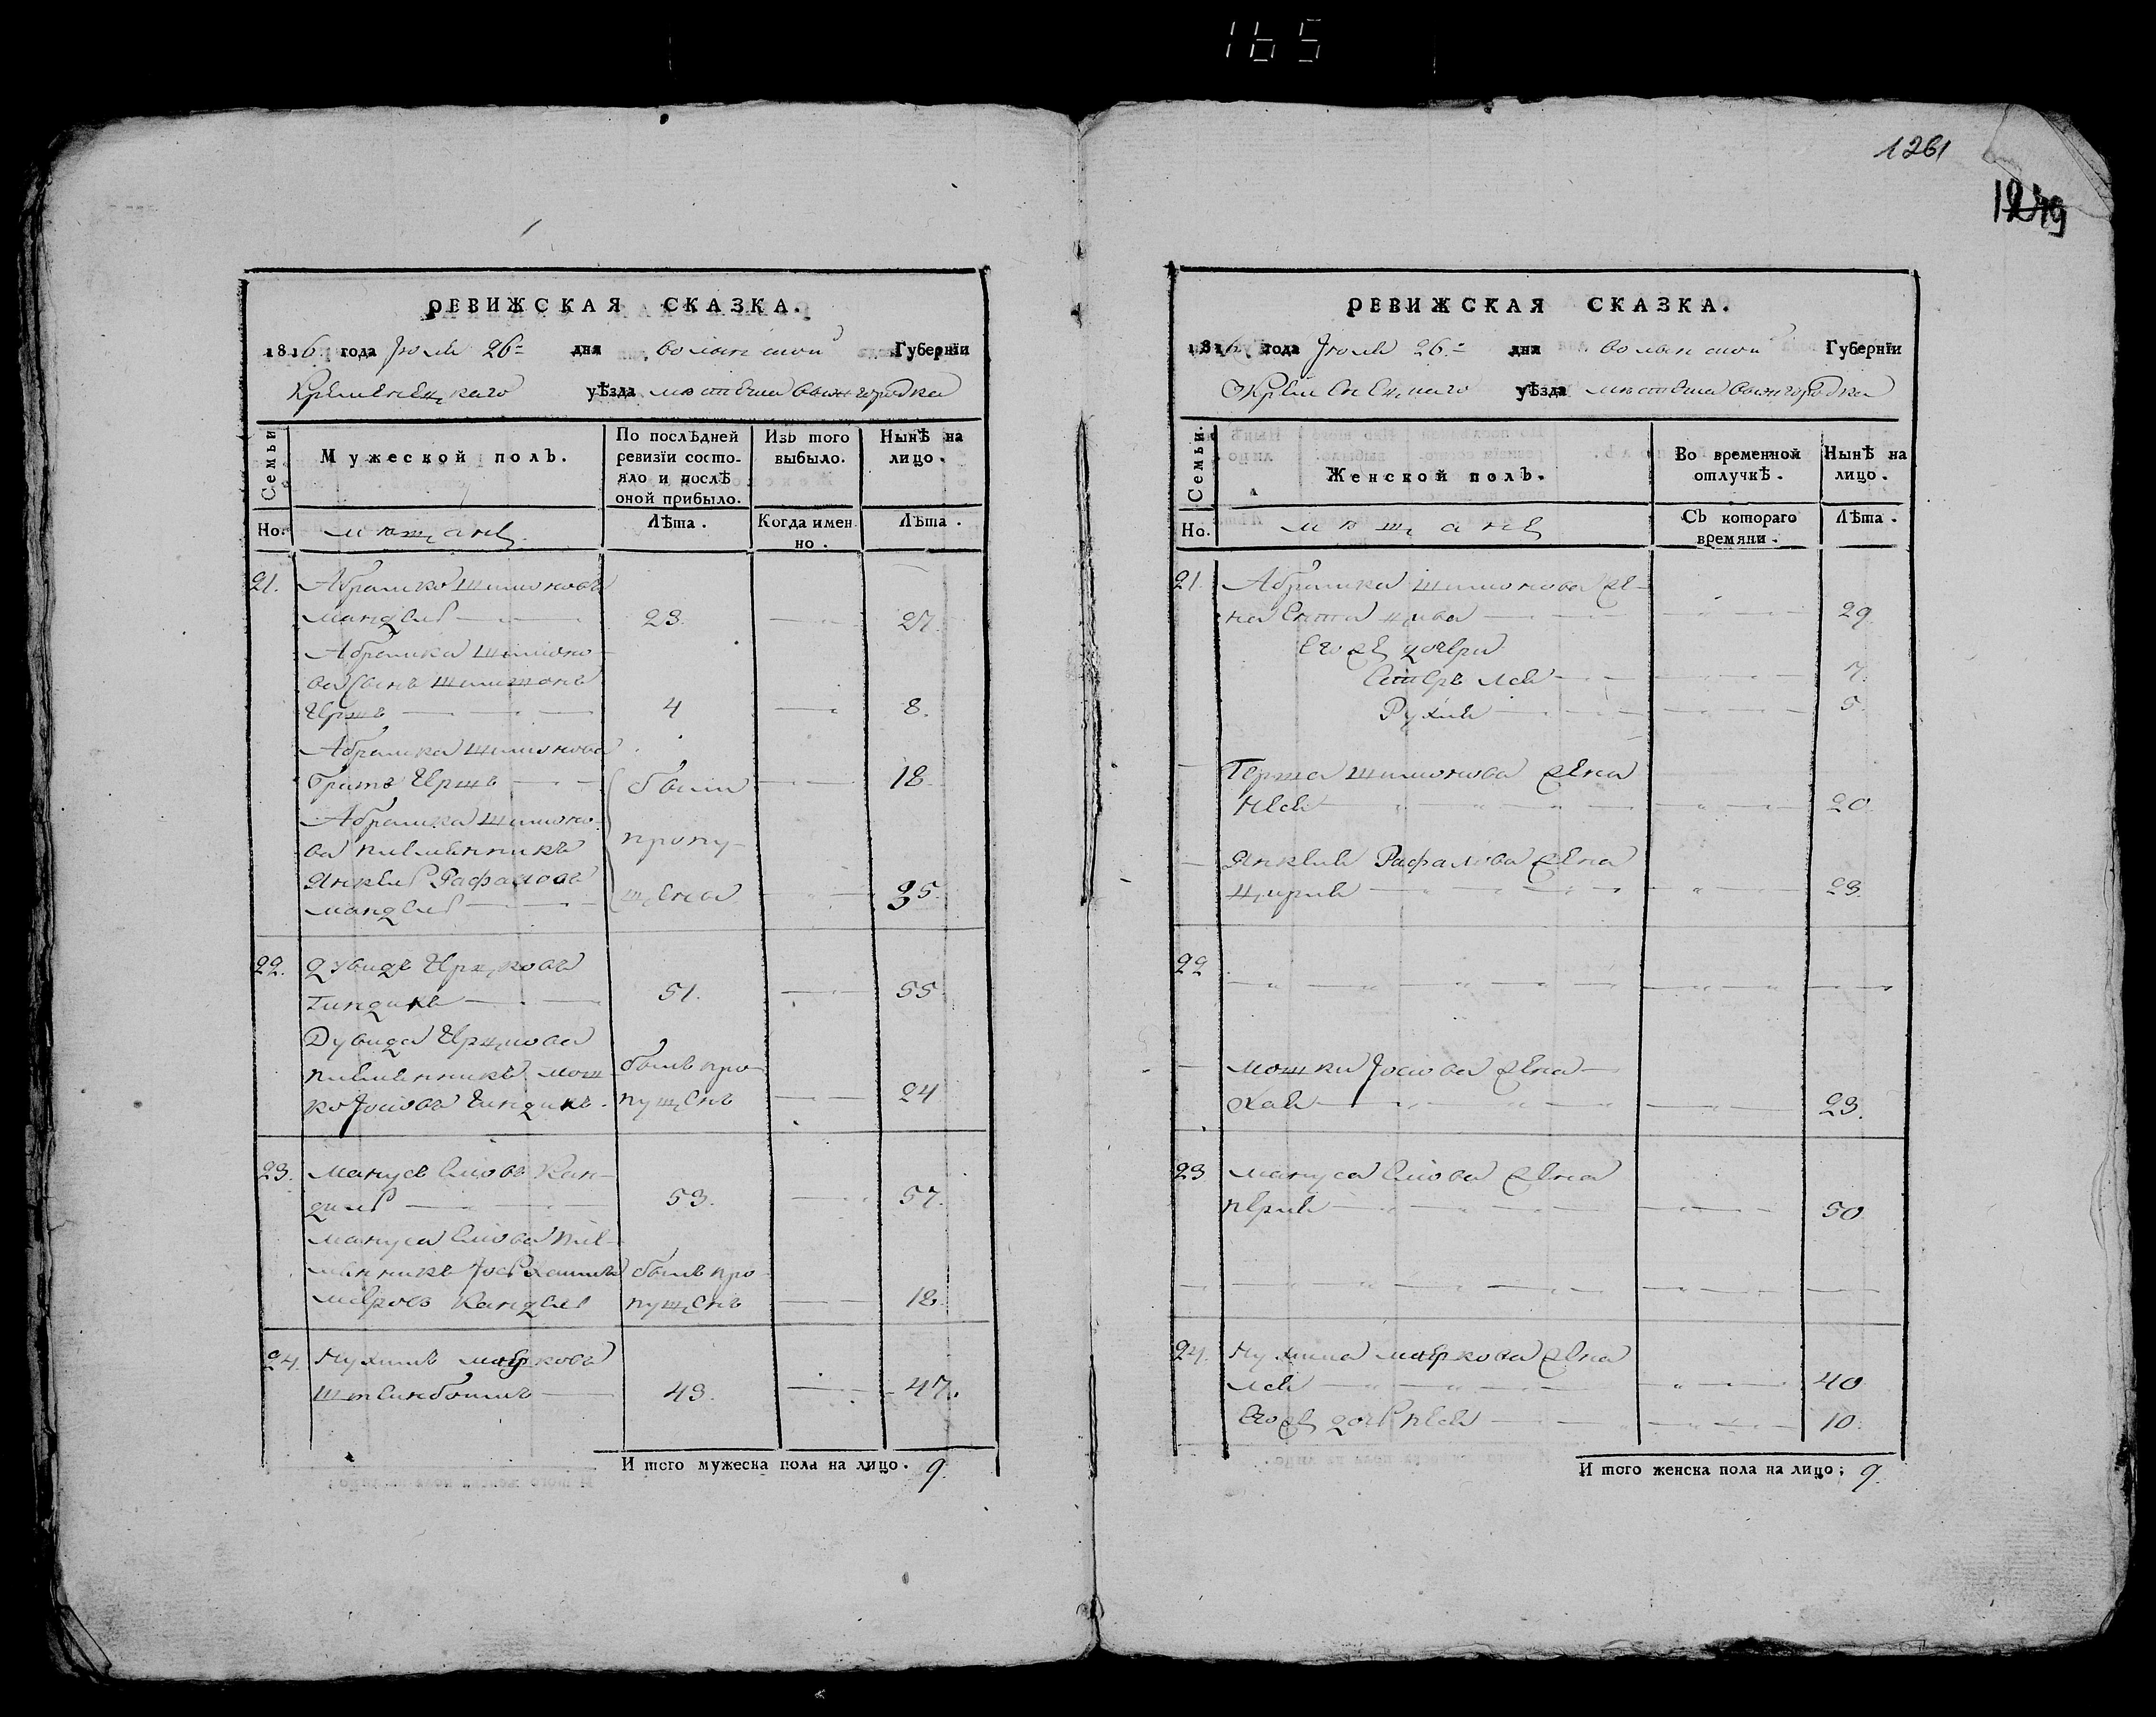 165
1261
1249
РЕВИЖСКАЯ СКАЗКА.
1816 года Июля 26 дня Волынской Губернїи
Кременецкаго уѣзда мѣстечка Вышгородка
Семьи
Мужеской полъ.
По послѣдней ревизїи состо-
яло и послѣ оной прибыло.
Изъ того выбыло.
Нынѣ на лицо.
Но.
мѣщане
Лѣта.
Когда имен но.
Лѣта.
21. Абрамко Шимоновъ
Мандель 23. 27.
Абрамка Шимоно-
ва сынъ
Гершъ 4 8.
Абрамка Шимонова
братъ Гершъ были 18
Абрамка Шимоно-
ва племенникъ пропу-
Янкель Рафаловъ
Мандель щены 35.
22. Дувидъ Герцковъ
Гиндикъ 51. 55
Дувида Герцкова
племенникъ Мош- былъ про-
ко Иосіовъ Гиндикъ. пущенъ 24
23. Манусъ Еліовъ Кан-
дель 53. 57.
Мануса Еліова пле-
менникъ Иось былъ про-
Кандель пущенъ 18
24. Нухимъ Мерковъ
43. 47.
И того мужеска пола на лицо. 9.
РЕВИЖСКАЯ СКАЗКА.
1816 года Июля 26. дня Волынской Губернїи
Кременецкаго уѣзда мѣстечка Вышгородка
Семьи.
Женской полъ.
Во временной отлучкѣ.
Нынѣ на лицо.
Но.
мѣщане
Съ котораго времяни.
Лѣта.
21. Абрамка Шимонова же-
на Ента 29
Его же дочери
Лея 7.
Рухля 5.
Герша Шимонова жена
20
Янкеля Рафалова жена
23
22
Мошки Иосіова жена
Хая 23.
23 Мануса Еліова жена
Перля 50
24. Нухима Меркова жена
Лея 40
Его же дочь Песя 10.
И того женска пола на лицо; 9.